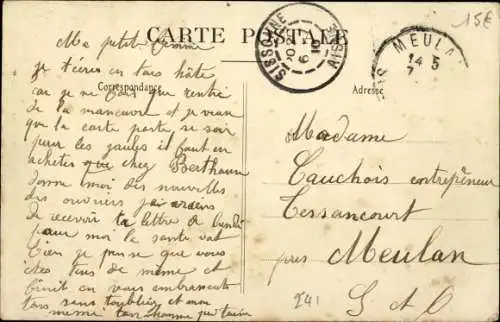 CARTE POSTALE
15€
SISSONNE
AISNE
MEULAN
14 5
Correspondance
Adresse
Ma petite femme
je t'écris en tous hâte
car je ne fais que rentré
de la manœuvre et je viens
que la carte poste se soir
pour les gaules il faut en
acheter que chez Berthaum
donne moi des nouvelles
des ouvriers j'ai
de recevoir ta lettre de lundi
pour moi la santé vat
bien je pense que vous
êtes tous de même et
finit en vous embrassant
tous sans toublier et mon
même ton homme pour la vie
Madame
Cauchois contrepreneur
Tessancourt
près Meulan
S & O
241